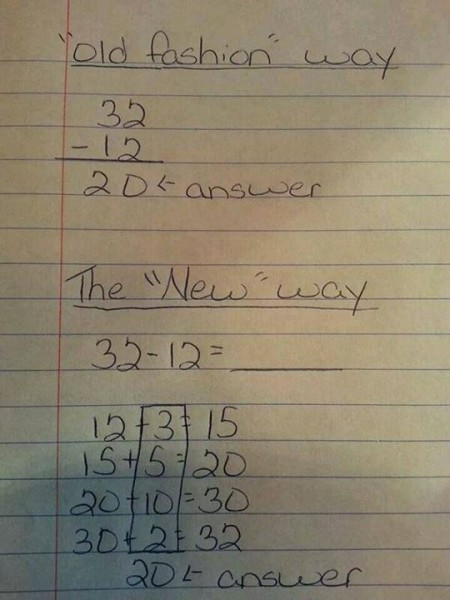 "old fashion" way
32
- 12
20 ← answer
The "New" way
32-12=______
12+3=15
15+5=20
20+10=30
30+2=32
20 ← answer